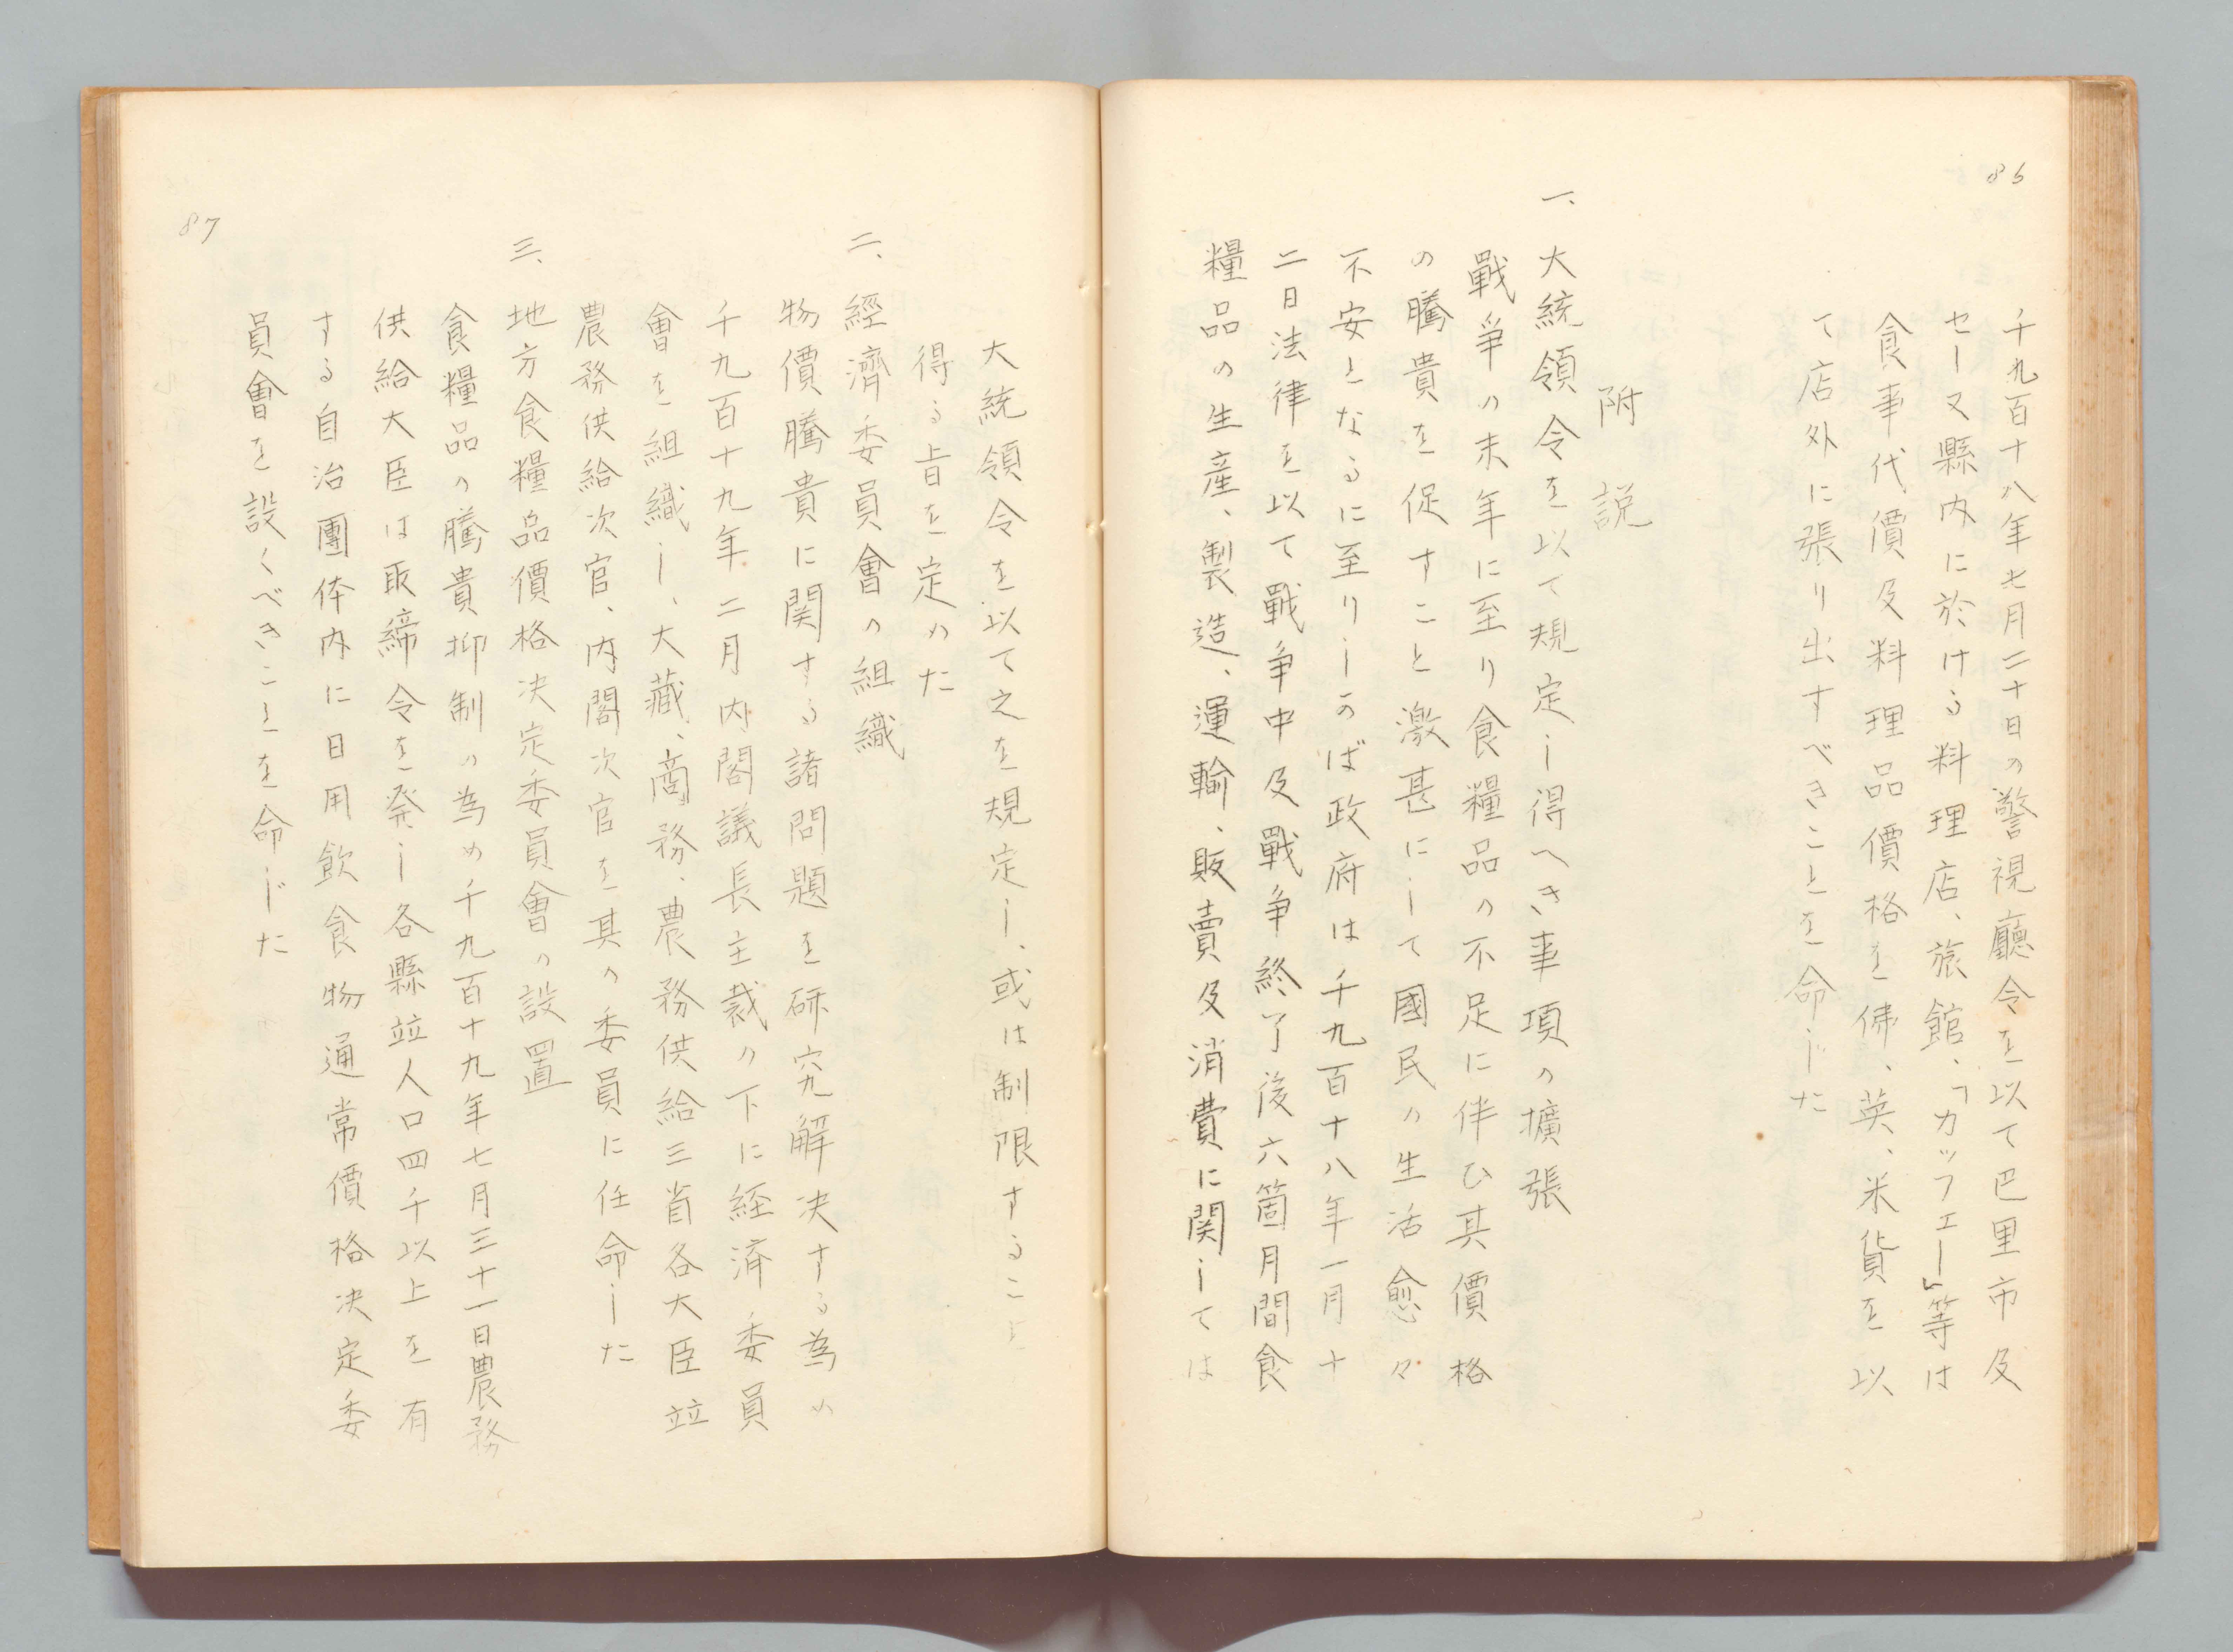 86
千九百十八年七月二十日の警視廳令を以て巴里市及
セーヌ縣内に於ける料理店、旅館、「カッフェー」等は
食事代價及料理品價格を佛、英、米貨を以
て店外に張り出すべきことを命じた
附説
一、大統領令を以て規定し得へき事項の擴張
戰爭の末年に至り食糧品の不足に伴ひ其價格
の騰貴を促すこと激甚にして國民の生活愈々
不安となるに至りしかば政府は千九百十八年一月十
二日法律を以て戰争中及戰争終了後六箇月間食
糧品の生産、製造、運輸、販賣及消費に関しては
大統領令を以て之を規定し、或は制限すること
得る旨を定めた
二、經濟委員會の組織
物價騰貴に関する諸問題を研究解决する為め
千九百十九年二月内閣議長主裁の下に経済委員
會を組織し、大藏、商務、農務供給三省各大臣竝
農務供給次官、内閣次官を其の委員に任命した
三、地方食糧品價格决定委員會の設置
食糧品の騰貴抑制の為め千九百十九年七月三十一日農務
供給大臣は取締令を発し各縣竝人口四千以上を有
する自治團体内に日用飲食物通常價格决定委
員會を設くべきことを命じた
87